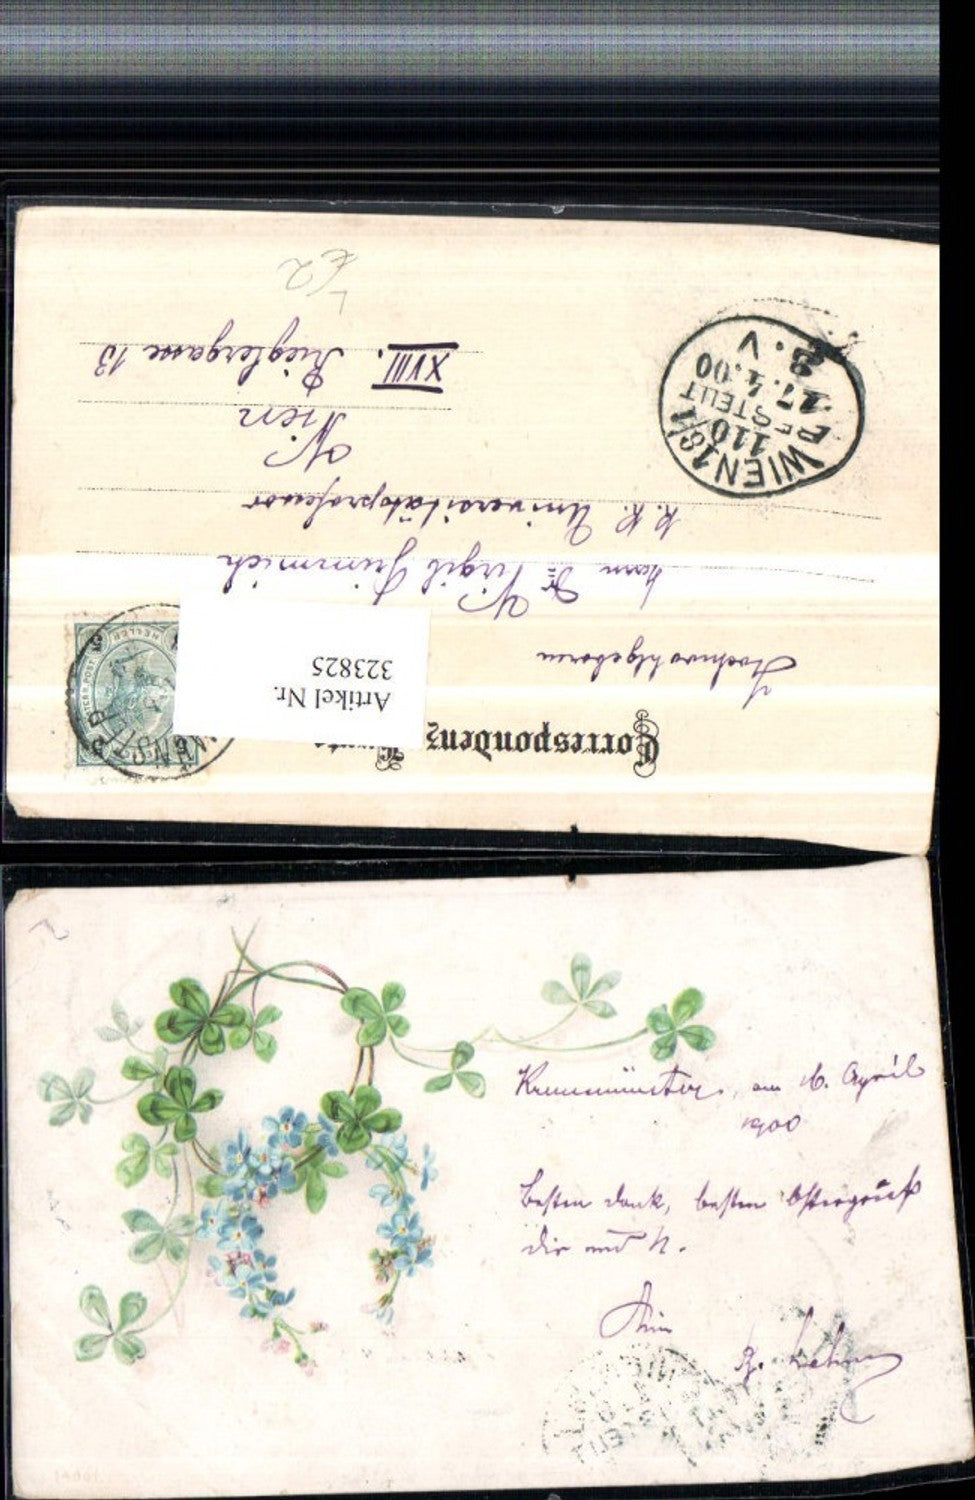 Correspondenz
Hochwohlgeboren
Herrn Dr. Virgil Grimmich
k. k. Universitätsprofessor
Wien
XVIII. Rieglergasse 13
WIEN 18/1
110
BESTELLT
17.4.00
8.V
HELLER
Artikel Nr.
323825
Kremsmünster, am 16. April
1900
Besten Dank, besten Ostergruß
dir und N.
Dein